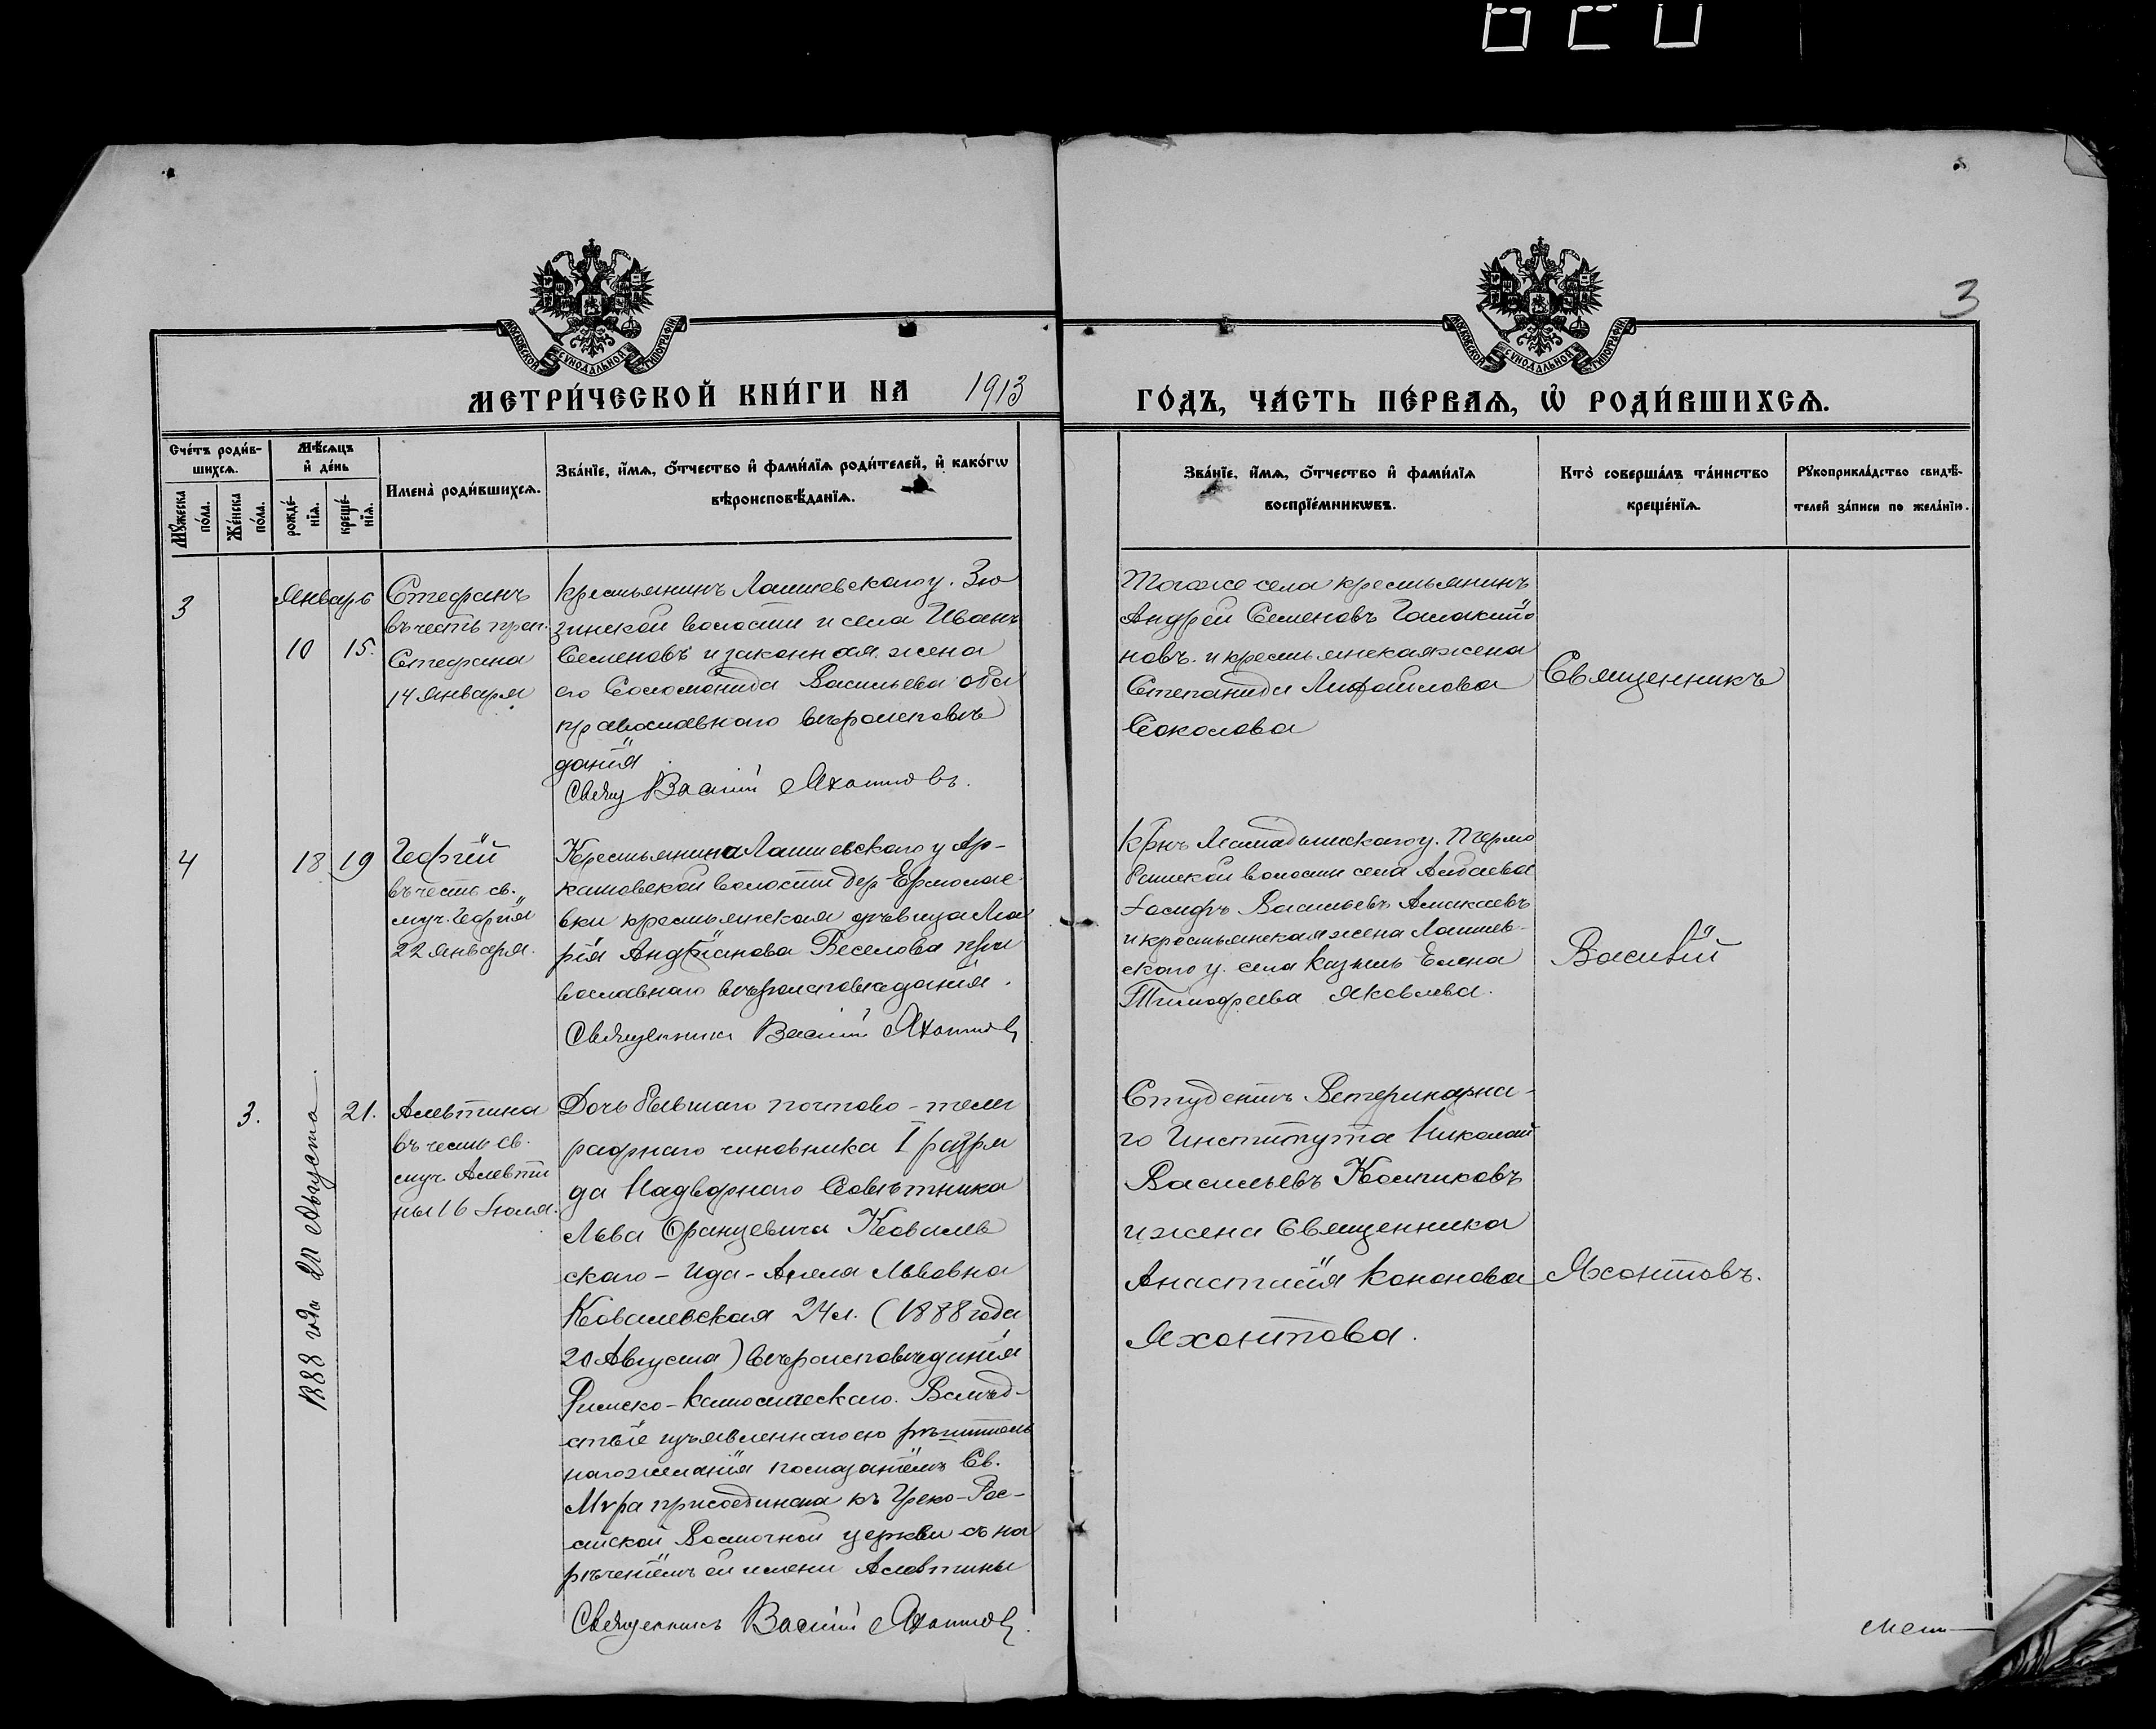 3
МОСКОВСКОЙ СУНОДАЛЬНОЙ ТИПОГРАФІИ
МОСКОВСКОЙ СУНОДАЛЬНОЙ ТИПОГРАФІИ
МЕТРИ́ЧЕСКОЙ КНИ́ГИ НА 1913
ГО́ДЪ, ЧА́СТЬ ПЕ́РВАѦ, Ѡ҆ РОДИ́ВШИХСѦ.
Сче́тъ роди́в-
шихсѧ.
Мѹ́жеска
по́ла.
Же́нска
по́ла.
Мѣ́сѧцъ
и҆ де́нь
рожде́-
нїѧ.
креще́-
нїѧ.
Имена̀ роди́вшихсѧ.
Зва́нїе, и҆́мѧ, ѻ҆́тчество и҆ фами́лїѧ роди́телей, и҆ како́гѡ
вѣроисповѣ́данїѧ.
Зва́нїе, и҆́мѧ, ѻ҆́тчество и҆ фами́лїѧ
воспрїе́мникѡвъ.
Кто̀ соверша́лъ та́инство
креще́нїѧ.
Рѹкоприкла́дство свидѣ́-
телей за́писи по жела́нїю.
3
Январь
10 15.
Стефанъ
въ честь преп.
Стефана
14 января
Крестьянинъ Лаишевскаго у. Зю
зинской волости и села Иванъ
Семеновъ и законная жена
его Соломонида Васильева оба
православнаго вѣроисповѣ
данія
Свящ Василій Яхонтовъ.
Тогоже села крестьянинъ
Андрей Семеновъ Галактіо
новъ и крестьянская жена
Степанида
Соколова
Священникъ
4
18 19
Георгій
въ честь св.
муч. Георгія
22 января.
Крестьянина Лаишевскаго у Ар-
каtовской волости дер Ермолае
вки крестьянская дѣвица Ма
рія Андріанова Веселова пра
вославнаго вѣроисповѣданія.
Священникъ Василій Яхонтовъ
Крнъ Мамадышскаго у.
волости села
Іосифъ Васильевъ
и крестьянская жена Лаишев-
скаго у. села Казыль Елена
Тимофеева Яковлева.
Василій
3.
1888 года 20 Августа
21.
Алевтина
въ честь св.
муч. Алевти
ны 16 Іюля.
Дочь бывшаго почтово-телег
рафнаго чиновника I разря
да Надворнаго Совѣтника
Льва Францевича Ковалев
скаго - Ида-Ангела Львовна
Ковалевская 24 л. (1888 года
20 Августа) вѣроисповѣданія
Римско-Католическаго. Вслѣд-
ствіе изъявленнаго ею рѣшитель
наго желанія помазаніемъ Св.
Мѵра присоединена къ Греко-Рос-
сійской Восточной церкви съ на
рѣченіемъ ей имени Алевтины
Священникъ Василій Яхонтовъ.
Студентъ Ветеринарна-
го Института Николай
Васильевъ
и жена Священника
Анастасія Кононова
Яхонтова.
Яхонтовъ.